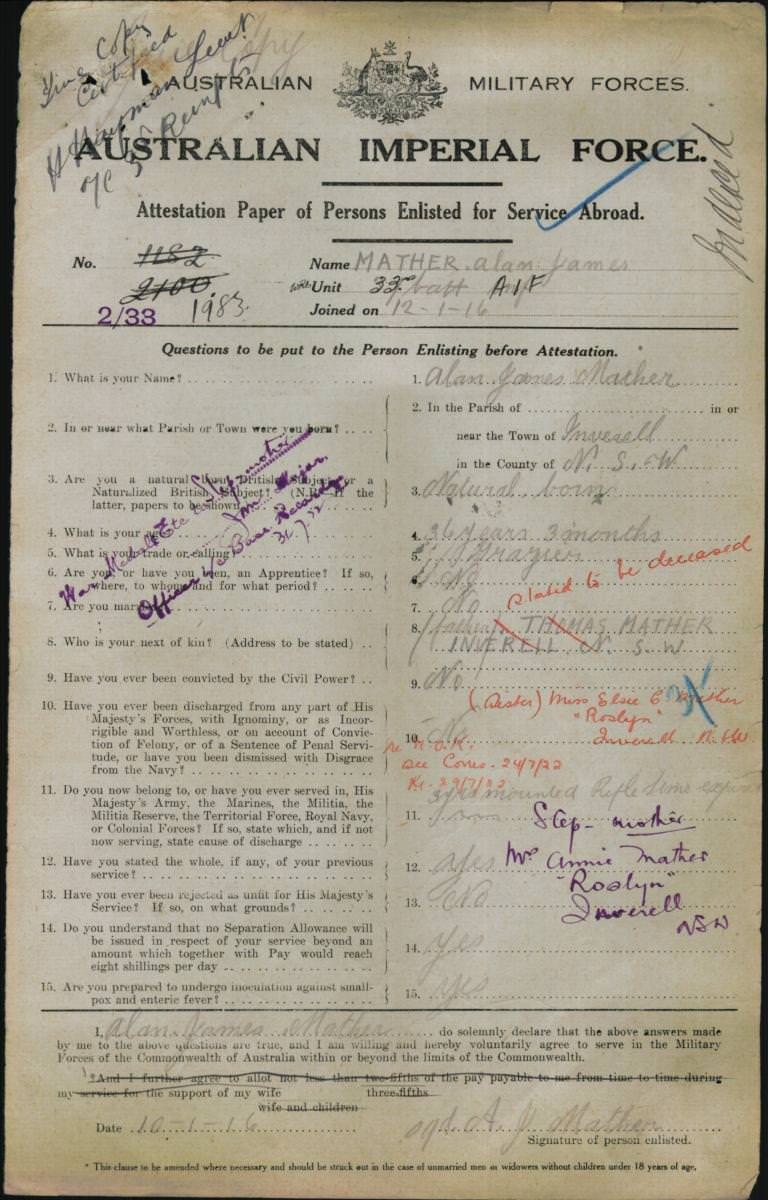 True Copy
Certified
Lieut
O/C 3rd Reinfts
AUSTRALIAN MILITARY FORCES.
AUSTRALIAN IMPERIAL FORCE.
Attestation Paper of Persons Enlisted for Service Abroad.
No. 1182
2100
2/33 1983
Name MATHER. Alan James
Unit 33rd Batt AIF
Joined on 12-1-16
Questions to be put to the Person Enlisting before Attestation.
1. What is your Name?
1. Alan James Mather
2. In or near what Parish or Town were you born?
2. In the Parish of in or
near the Town of Inverell
in the County of N. S. W
3. Are you a natural born British Subject or a
Naturalized British Subject? (N.B. If the
latter, papers to be shown)
3. Natural born
4. What is your age
4. 36 years 3 months
5. What is your trade or calling
5. Grazier
6. Are you, or have you been, an Apprentice? If so,
where, to whom, and for what period?
6. No
7. Are you married
7. No
stated to be deceased
8. Who is your next of kin? (Address to be stated)
8. (father) THOMAS MATHER
INVERELL N. S. W
War Medals Etc Step-mother
Major
Officer i/c Base Records
31.7.22
9. Have you ever been convicted by the Civil Power?
9. No
(Sister) Miss Elsie C. Mather
"Roslyn"
Inverell N.S.W
10. Have you ever been discharged from any part of His
Majesty's Forces, with Ignominy, or as Incor-
rigible and Worthless, or on account of Convic-
tion of Felony, or of a Sentence of Penal Servi-
tude, or have you been Dismissed with Disgrace
from the Navy?
10. No
re N.O.K.
see Corres. 24/7/22
29/7/22
11. Do you now belong to, or have you ever served in, His
Majesty's Army, the Marines, the Militia, the
Militia Reserve, the Territorial Force, Royal Navy,
or Colonial Forces? If so, state which, and if not
now serving, state cause of discharge
11. mounted Rifle time expired
Step-mother
Mrs Annie Mather
"Roslyn"
Inverell
NSW
12. Have you stated the whole, if any, of your previous
service?
12. yes
13. Have you ever been rejected as unfit for His Majesty's
Service? If so, on what grounds?
13. No
14. Do you understand that no Separation Allowance will
be issued in respect of your service beyond an
amount which together with Pay would reach
eight shillings per day
14. Yes
15. Are you prepared to undergo inoculation against small-
pox and enteric fever?
15. yes
I, Alan James Mather do solemnly declare that the above answers made
by me to the above questions are true, and I am willing and hereby voluntarily agree to serve in the Military
Forces of the Commonwealth of Australia within or beyond the limits of the Commonwealth.
*And I further agree to allot not less than two-fifths of the pay payable to me from time to time during
my service for the support of my wife three-fifths
wife and children
Date 10-1-16 sgd. A J Mather
Signature of person enlisted.
* This clause to be amended where necessary and should be struck out in the case of unmarried men or widowers without children under 18 years of age.